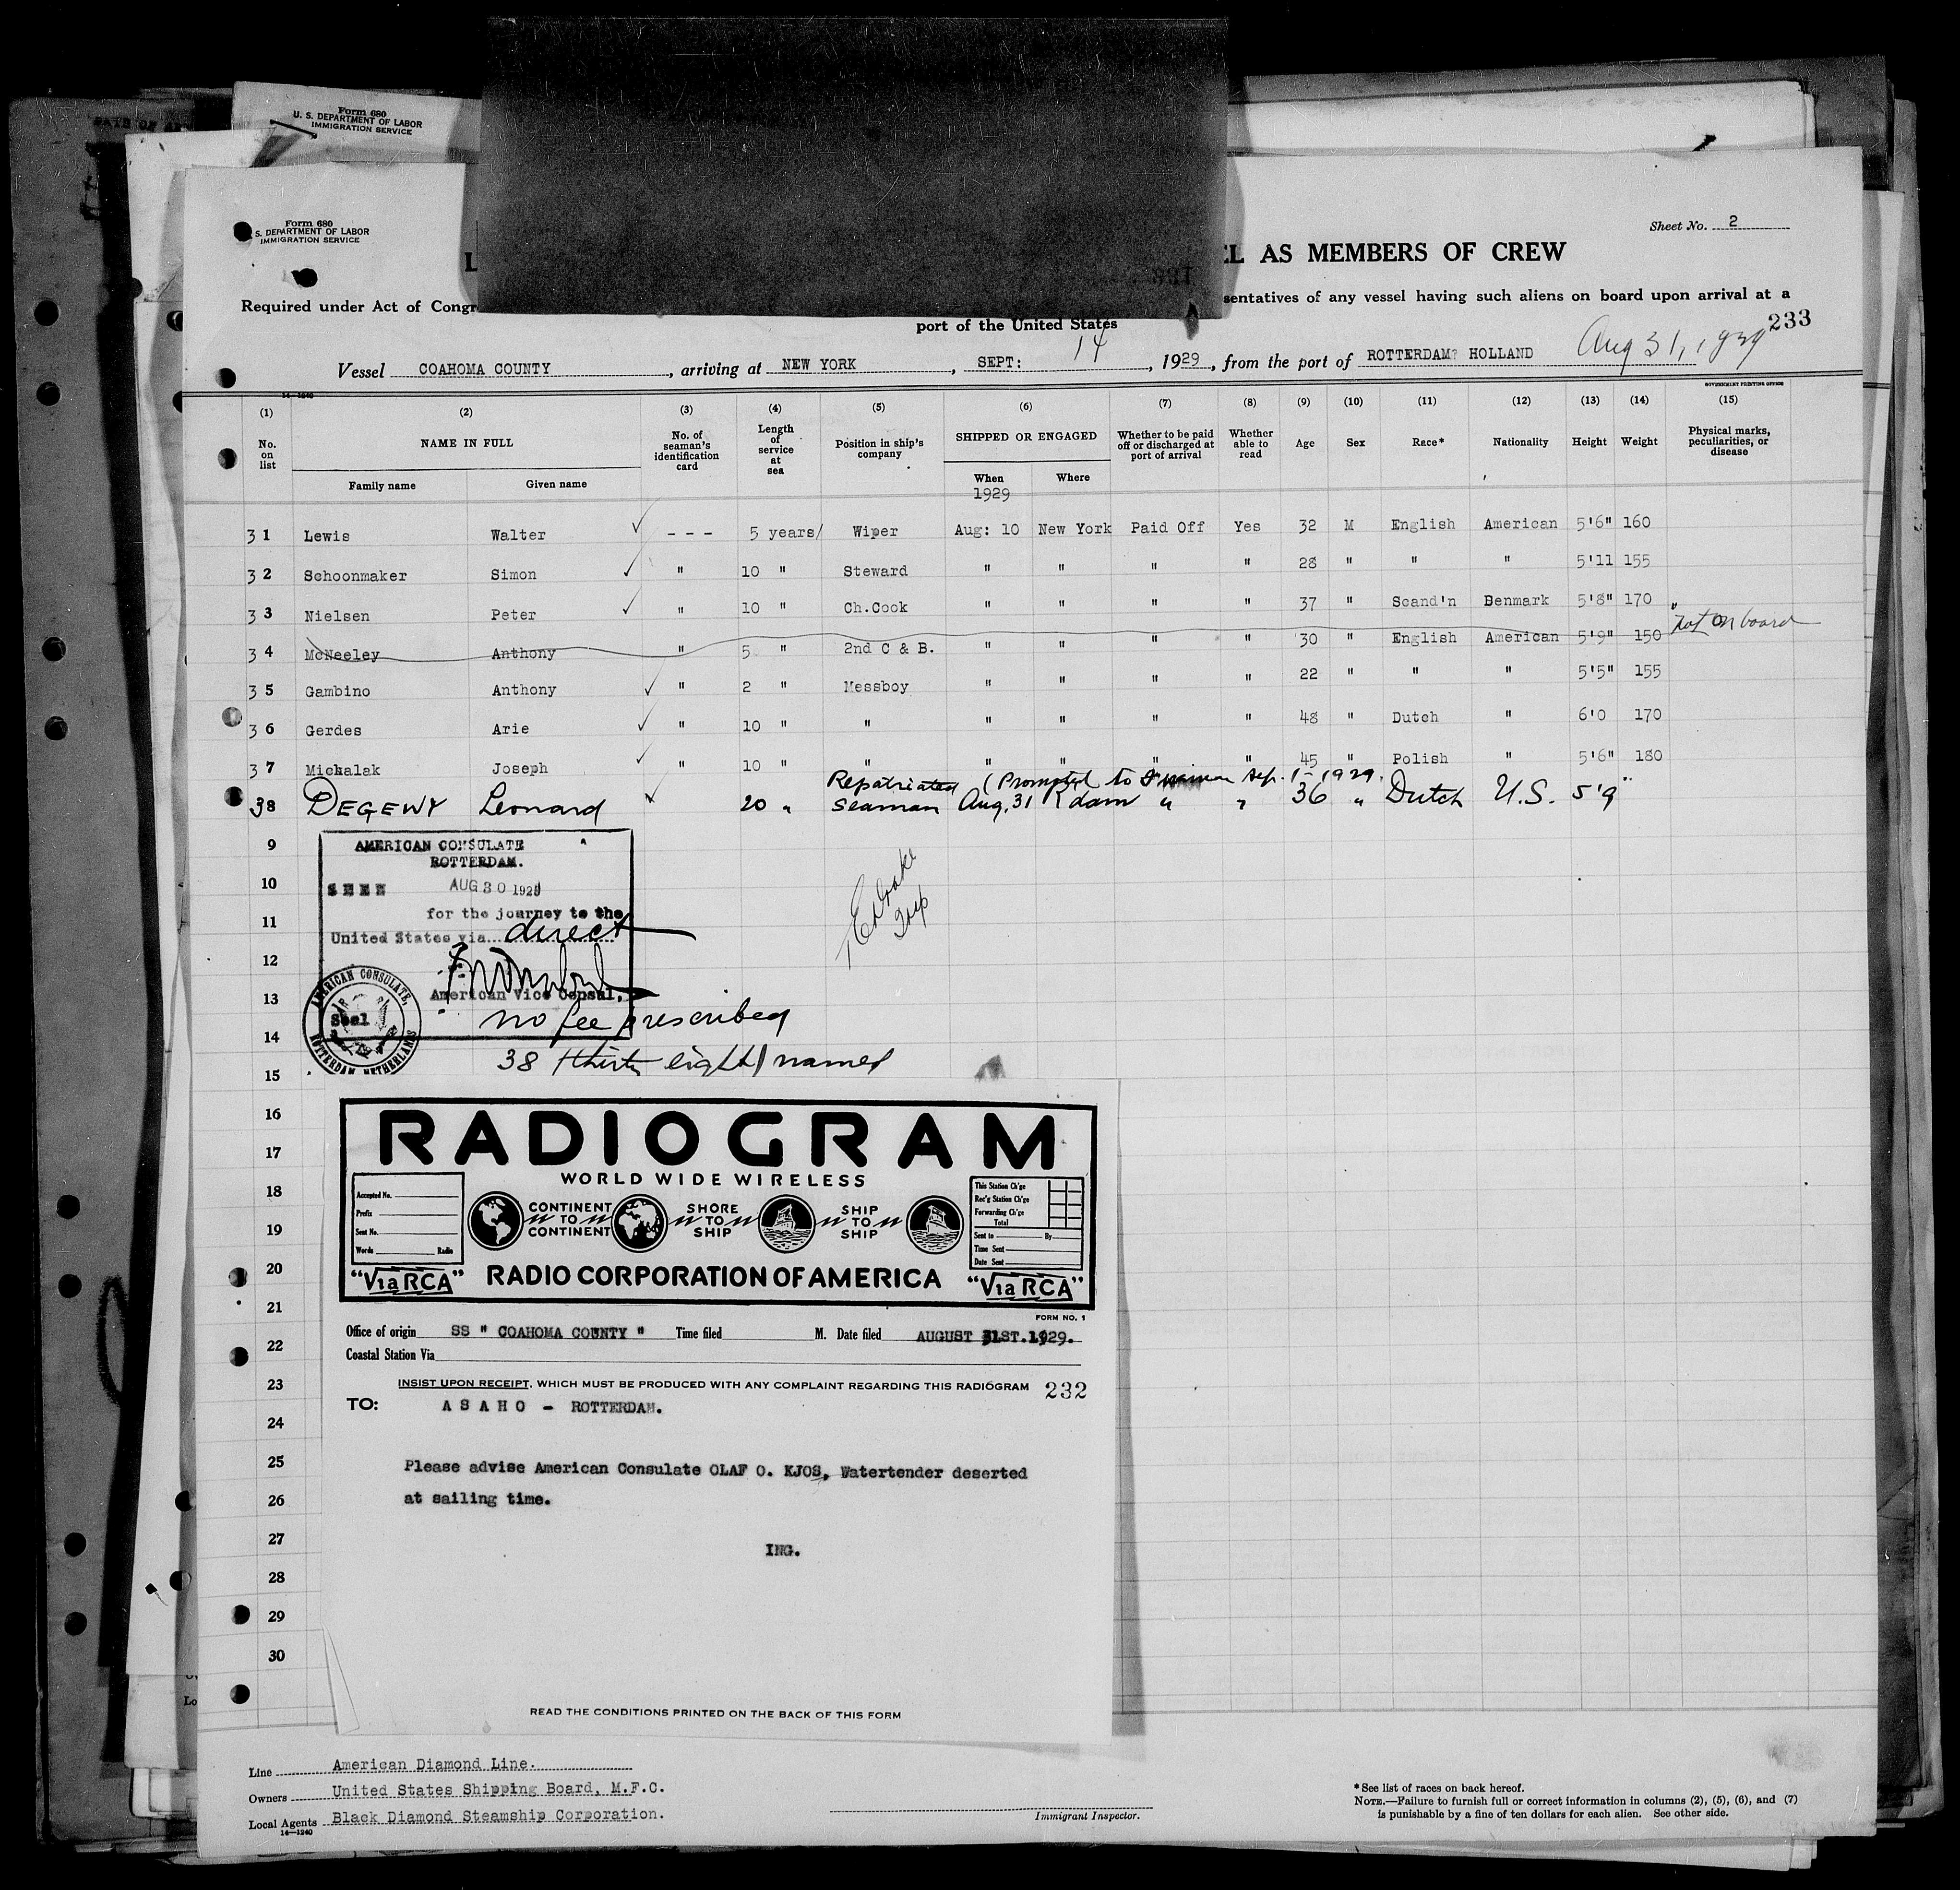 Form 680
U. S. DEPARTMENT OF LABOR
IMMIGRATION SERVICE
Form 680
S. DEPARTMENT OF LABOR
IMMIGRATION SERVICE
Sheet No. 2
L AS MEMBERS OF CREW
Required under Act of Congr sentatives of any vessel having such aliens on board upon arrival at a
port of the United States
233
Aug 31, 1929
Vessel COAHOMA COUNTY, arriving at NEW YORK, SEPT: 14, 1929, from the port of ROTTERDAM? HOLLAND
14—1240
GOVERNMENT PRINTING OFFICE
(1) (2) (3) (4) (5) (6) (7) (8) (9) (10) (11) (12) (13) (14) (15)
No. on list NAME IN FULL No. of seaman's identification card Length of service at sea Position in ship's company SHIPPED OR ENGAGED Whether to be paid off or discharged at port of arrival Whether able to read Age Sex Race* Nationality Height Weight Physical marks, peculiarities, or disease
Family name Given name When Where
1929
31 Lewis Walter --- 5 years/ Wiper Aug: 10 New York Paid Off Yes 32 M English American 5'6" 160
32 Schoonmaker Simon " 10 " Steward " " " " 28 " " " 5'11 155
33 Nielsen Peter " 10 " Ch.Cook " " " " 37 " Scand'n Denmark 5'8" 170
34 McNeeley Anthony " 5 " 2nd C & B. " " " " 30 " English American 5'9" 150 "not on board
35 Gambino Anthony " 2 " Messboy " " " " 22 " " " 5'5" 155
36 Gerdes Arie " 10 " " " " " " 48 " Dutch " 6'0 170
37 Michalak Joseph " 10 " " " " " " 45 " Polish " 5'6" 180
Repatriated (Promoted to Sep. 1-1929.
38 DEGEWY Leonard 20 " Seaman Aug, 31 R'dam " " 36 " Dutch U.S. 5'9"
9
AMERICAN CONSULATE
ROTTERDAM.
10
SEEN AUG 30 1929
11
for the journey to the
United States via direct
12
American Vice Consul,
13
AMERICAN CONSULATE, ROTTERDAM, NETHERLANDS
Seal
no fee prescribed
14
38 (thirty eight) named
15
16
RADIOGRAM
17
WORLD WIDE WIRELESS
18
Accepted No.
Prefix
Sent No.
Words Radio
CONTINENT TO CONTINENT
SHORE TO SHIP
SHIP TO SHIP
This Station Ch'ge
Rec'g Station Ch'ge
Forwarding Ch'ge
Total
Sent to By
Time Sent
Date Sent
19
20
"Via RCA" RADIO CORPORATION OF AMERICA "Via RCA"
21
FORM NO. 1
Office of origin SS " COAHOMA COUNTY " Time filed M. Date filed AUGUST 31ST.1929.
22
Coastal Station Via
23
INSIST UPON RECEIPT, WHICH MUST BE PRODUCED WITH ANY COMPLAINT REGARDING THIS RADIOGRAM 232
TO: A S A H O - ROTTERDAM.
24
25
Please advise American Consulate OLAF O. KJOS, Watertender deserted
26
at sailing time.
27
ING.
28
29
30
READ THE CONDITIONS PRINTED ON THE BACK OF THIS FORM
Line American Diamond Line.
Owners United States Shipping Board, M.F.C.
Local Agents Black Diamond Steamship Corporation.
14—1240
Immigrant Inspector.
*See list of races on back hereof.
NOTE.—Failure to furnish full or correct information in columns (2), (5), (6), and (7)
is punishable by a fine of ten dollars for each alien. See other side.